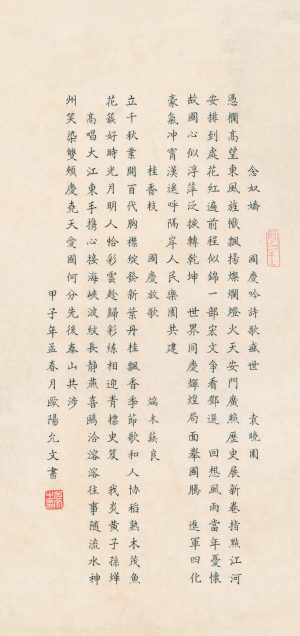 念奴嬌　國慶吟詩歌盛世　袁曉園
憑欄高望東風旌幟飄揚燦爛燈火天安門廣照歷史展新卷指點江河
安排到處花紅遍前程似錦一部宏文爭看鄧選　回想風雨當年憂懷
故國心似浮萍泛捩轉乾坤　世界同慶輝煌局面舉國騰　進軍四化
豪氣冲霄漢遠呼隔岸人民樂園共建
桂香枝　國慶放歌　端木蕻良
立千秋業開百代胸襟綻發新葉丹桂飄香季節歌和人協稻熟木茂魚
花簇好時光月明人恰彩雲趁歸彩練相迎青標史笈　我炎黃子孫燁
高唱大江東手携心接海峽波紋長靜燕喜鷗洽溶溶往事隨流水神
州笑染雙頰慶堯天愛國何分先後泰山共涉
甲子年孟春月歐陽允文書